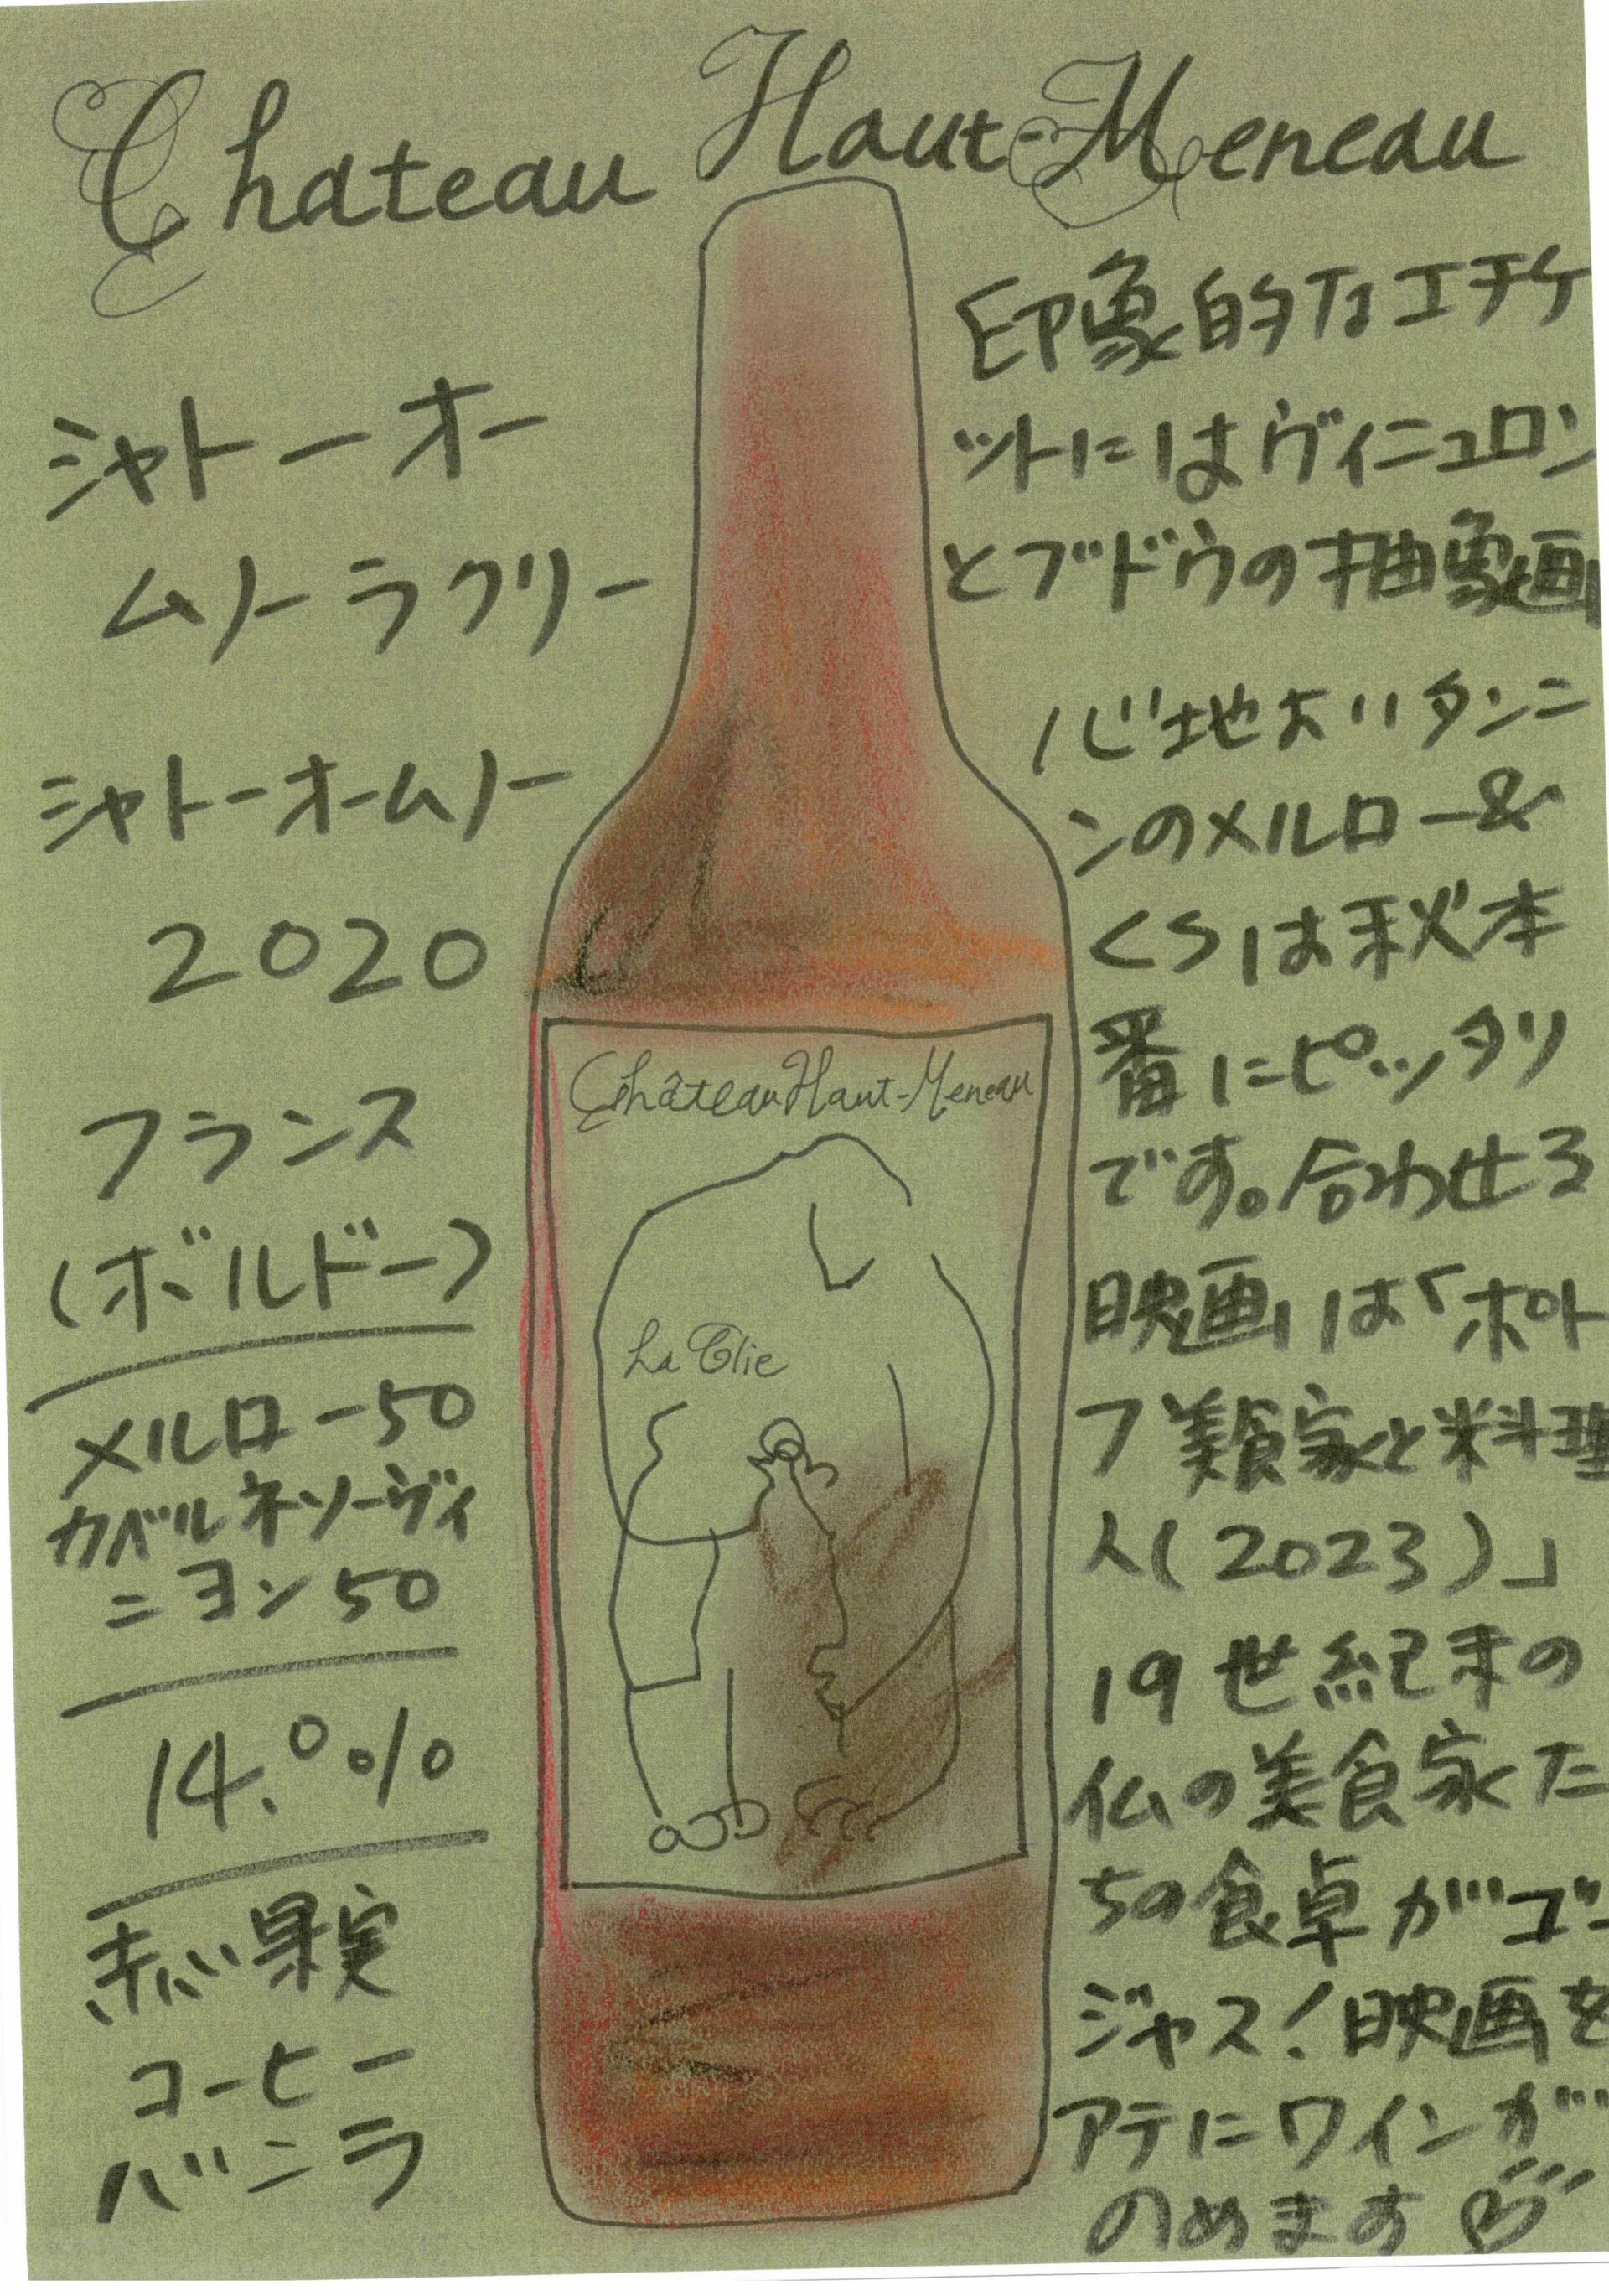 Chateau Haut-Meneau
シャトーオー
ムノーラクリー
シャトーオームノー
2020
フランス
(ボルドー)
メルロー50
カベルネソーヴィ
ニヨン50
14.0%
赤い果実
コーヒー
バニラ
Château Haut-Meneau
La Clie
印象的なエチケ
ットにはヴィニュロン
とブドウの抽象画
心地よいタンニ
ンのメルロー&
CSは秋本
番にピッタリ
です。合わせる
映画は「ポト
フ美食家と料理
人(2023)」
19世紀末の
仏の美食家た
ちの食卓がゴー
ジャス!映画を
アテにワインが
のめます